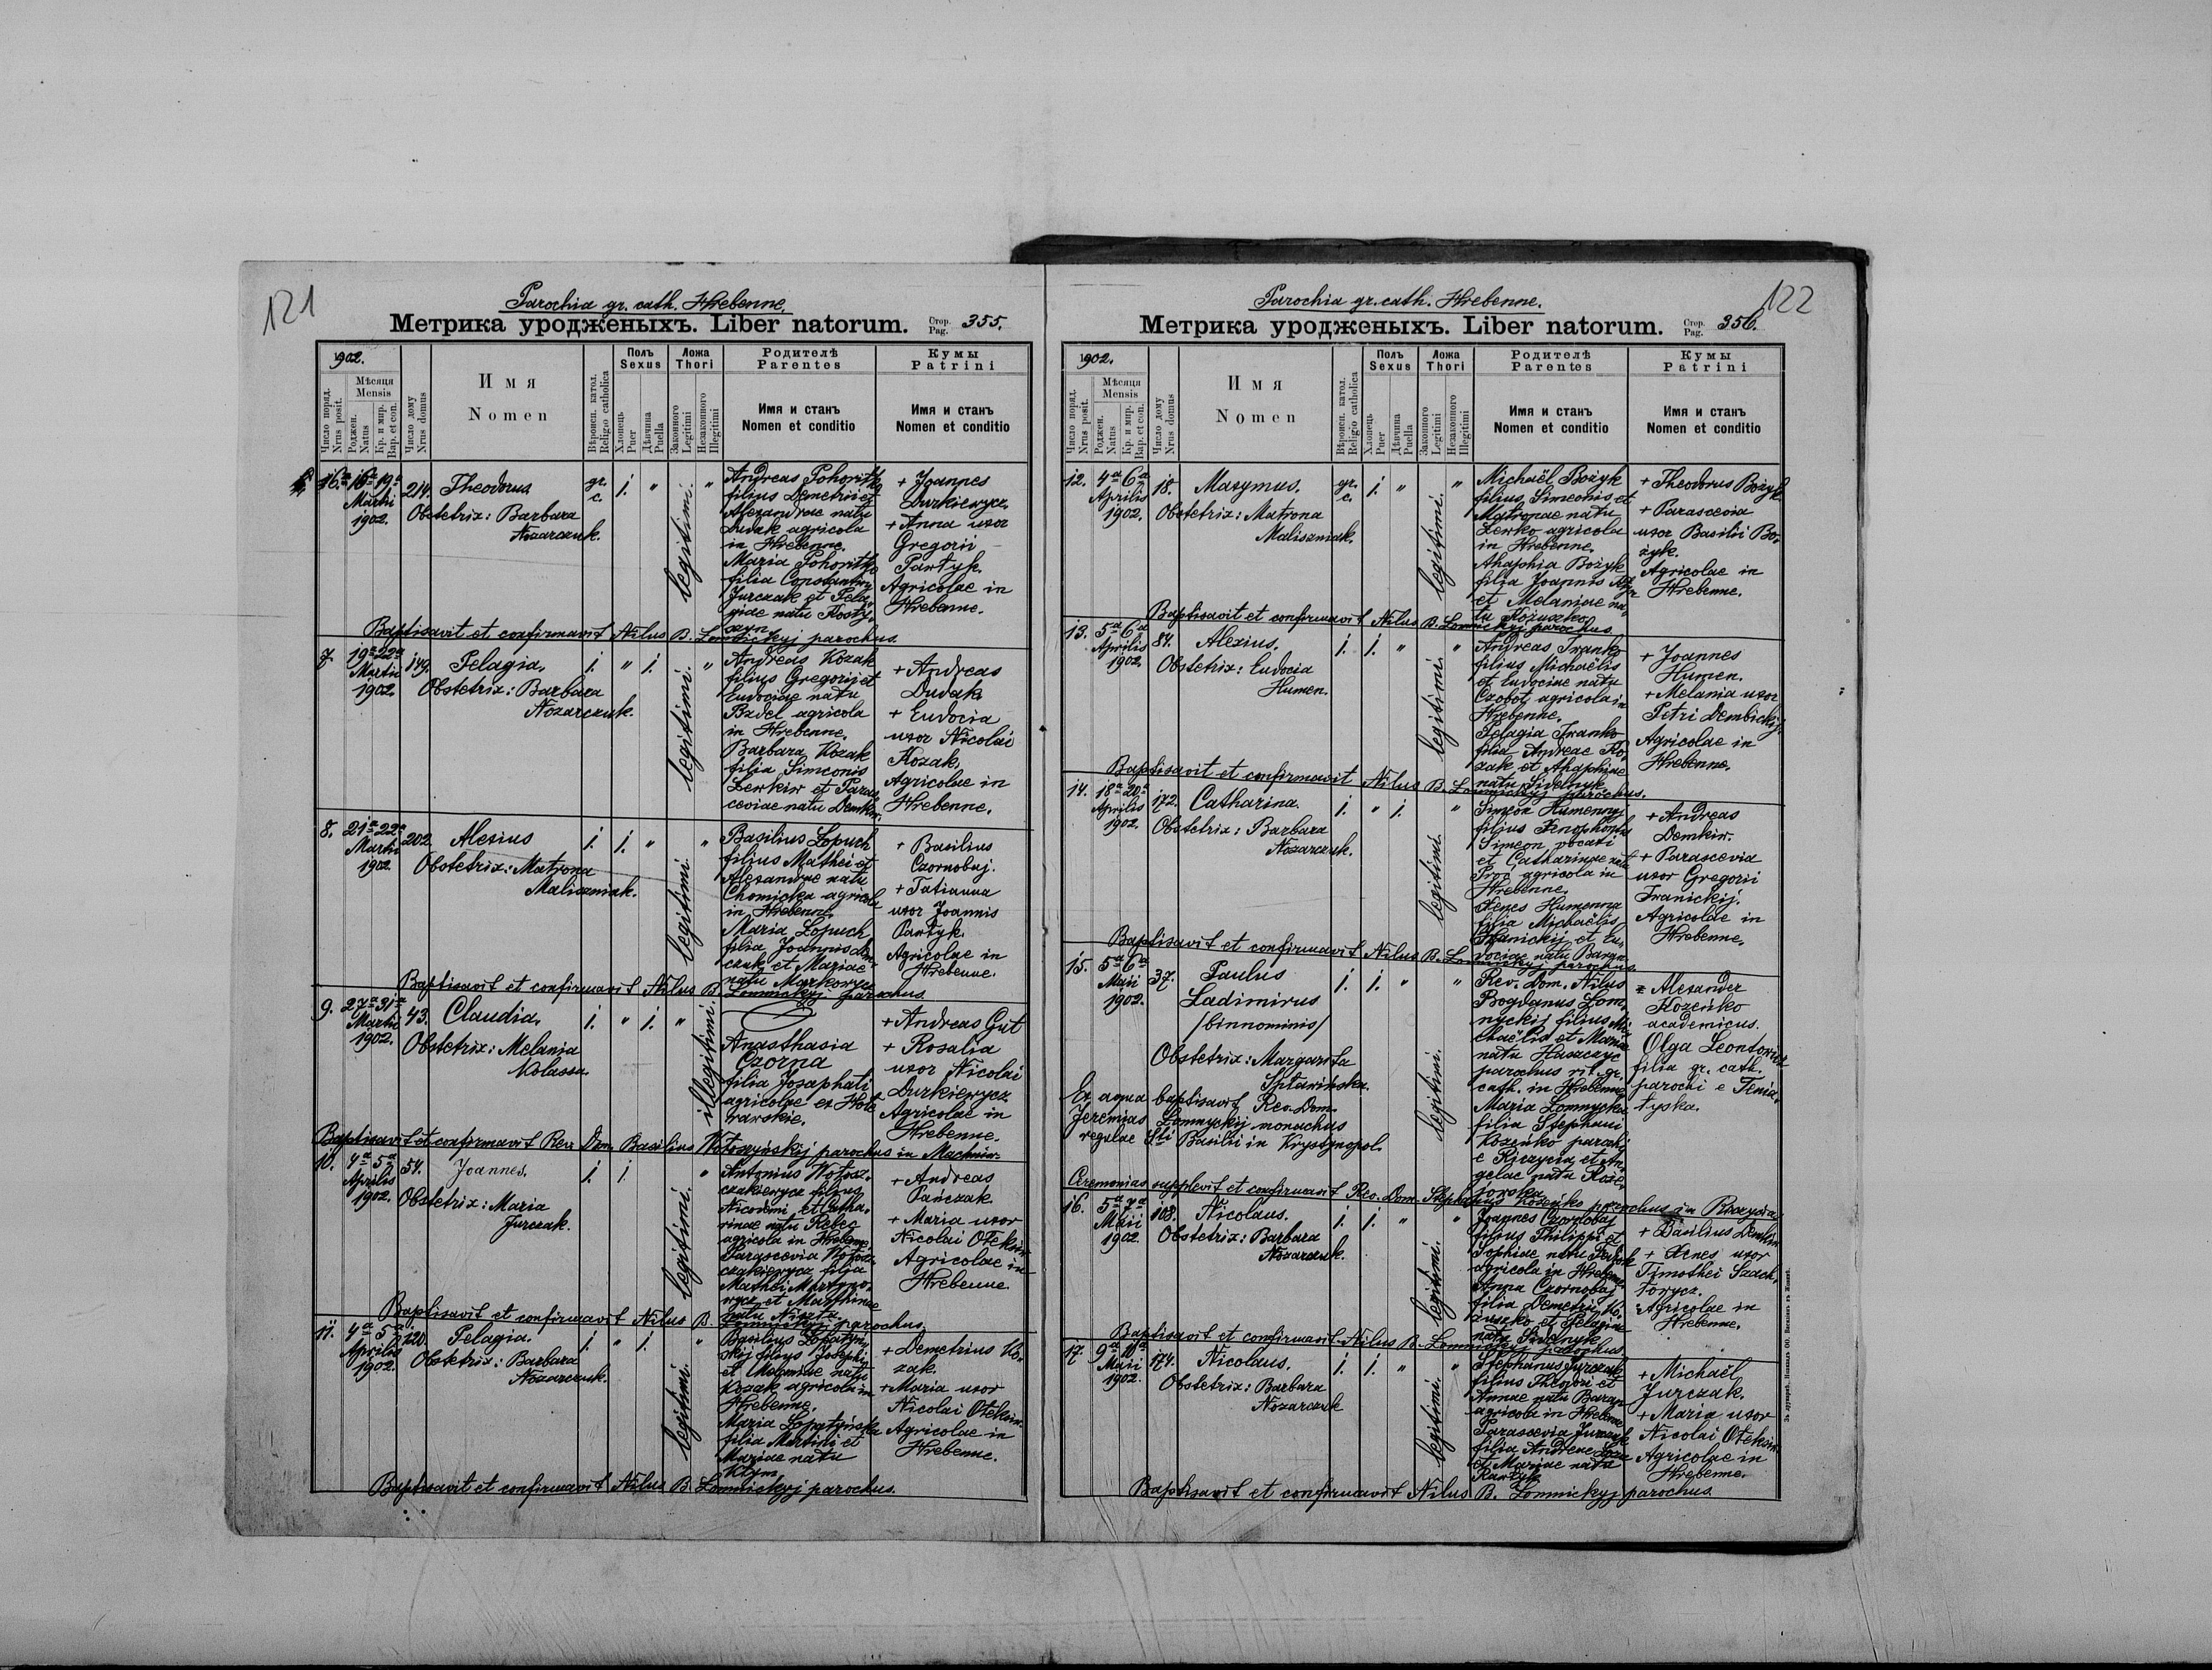 121
Parochia gr. cath. Hrebenne.
Метрика уродженыхъ. Liber natorum. Стор. Pag. 355.
1902.
Число поряд. Nrus posit.
Мѣсяця Mensis
Роджен. Natus
Кр. и мир. Bap. et con.
Число дому Nrus domus
Имя
Nomen
Вѣроисп. катол. Religio catholica
Полъ Sexus
Хлопець Puer
Дѣвчина Puella
Ложа Thori
Законного Legitimi
Незаконного Illegitimi
Родителѣ
Parentes
Имя и станъ
Nomen et conditio
Кумы
Patrini
Имя и станъ
Nomen et conditio
16a 19a 214. Theodorus. gr. c. 1. "
Martii
1902. Obstetrix: Barbara
Nozarczuk.
legitimi.
"
Andreas
filius Demetrii et
Alexandrae natu
Dudak agricola
in Hrebenne.
Maria
filia Constantini
Jurczak et Pela-
giae natu
+ Joannes
Durkiewycz.
+ Anna uxor
Gregorii
Partyk.
Agricolae in
Hrebenne.
Baptisavit et confirmavit Nilus B. Lomnickyj parochus.
7. 19a 22a 149. Pelagia. 1. " 1. "
Martii
1902. Obstetrix: Barbara
Nozarczuk.
legitimi.
Andreas Kozak
filius Gregorii et
Eudociae natu
Bzdel agricola
in Hrebenne.
Barbara Kozak
filia Simeonis
Lewkiw et Paras-
ceviae natu Demkiw.
+ Andreas
Dudak
+ Eudocia
uxor Nicolai
Kozak.
Agricolae in
Hrebenne.
8. 21a 22a 202. Alexius 1. 1. " "
Martii
1902. Obstetrix: Matrona
Maliszniak.
legitimi.
Basilius Lopuch
filius Mathei et
Alexandrae natu
Chomicka agricola
in Hrebenne.
Maria Lopuch
filia Joannis
et Mariae
natu
+ Basilius
Czornobaj.
+ Tatianna
uxor Joannis
Partyk.
Agricolae in
Hrebenne.
Baptisavit et confirmavit Nilus B. Lomnickyj parochus.
9. 27a 31a 43. Claudia. 1. " 1. "
Martii
1902. Obstetrix: Melania
Kolassa.
illegitimi.
Anasthasia
Czorna
filia Josaphati
agricolae ex
+ Andreas Gut
+ Rosalia
uxor Nicolai
Durkiewycz
Agricolae in
Hrebenne.
Baptisavit et confirmavit Rev. Dom. Basilius Wołoszyńskij parochus in Machniw.
10. 4a 5a 54. Joannes. 1. 1. "
Aprilis
1902. Obstetrix: Maria
Jurczak.
legitimi.
Antonius Wołosz-
czakiewycz filius
Nicodimi et Catha-
rinae natu
agricola in Hrebenne
Parascevia Wołosz-
czakiewycz filia
Mathei Martyno-
wycz et
natu
+ Andreas
Pańczak.
+ Maria uxor
Nicolai Oleksiw.
Agricolae in
Hrebenne.
Baptisavit et confirmavit Nilus B. Lomnickyj parochus.
11. 4a 5a 120. Pelagia. 1. " 1. "
Aprilis
1902. Obstetrix: Barbara
Nozarczuk.
legitimi.
Basilius Lopatyn-
skij filius Josephi
et Melaniae natu
Kozak agricola in
Hrebenne.
Maria Lopatyńska
filia Martini et
Mariae natu
Klym.
+ Demetrius Ko-
zak.
+ Maria uxor
Nicolai Oleksiw.
Agricolae in
Hrebenne.
Baptisavit et confirmavit Nilus B. Lomnickyj parochus.
122
Parochia gr. cath. Hrebenne.
Метрика уродженыхъ. Liber natorum. Стор. Pag. 356.
1902.
Число поряд. Nrus posit.
Мѣсяця Mensis
Роджен. Natus
Кр. и мир. Bap. et con.
Число дому Nrus domus
Имя
Nomen
Вѣроисп. катол. Religio catholica
Полъ Sexus
Хлопець Puer
Дѣвчина Puella
Ложа Thori
Законного Legitimi
Незаконного Illegitimi
Родителѣ
Parentes
Имя и станъ
Nomen et conditio
Кумы
Patrini
Имя и станъ
Nomen et conditio
12. 4a 6a 18. Maxymus. gr. c. 1. " "
Aprilis
1902. Obstetrix: Matrona
Maliszniak.
legitimi.
Michaël Bożyk
filius Simeonis et
Matronae natu
Lewko agricola
in Hrebenne.
Ahaphia Bożyk
filia Joannis
et Melaniae na-
tu Kożuszko.
+ Theodorus Bożyk.
+ Parascevia
uxor Basilii Bo-
żyk.
Agricolae in
Hrebenne.
Baptisavit et confirmavit Nilus B. Lomnickyj parochus.
13. 5a 6a 84. Alexius. 1. 1. " "
Aprilis
1902. Obstetrix: Eudocia
Humen.
legitimi.
Andreas Iranko
filius Michaëlis
et Eudociae natu
Czobot agricola in
Hrebenne.
Pelagia Iranko
filia Andreae Ko-
zak et Ahaphiae
natu Sidelnyk.
+ Joannes
Humen.
+ Melania uxor
Petri Dembickij.
Agricolae in
Hrebenne.
Baptisavit et confirmavit Nilus B. Lomnickyj parochus.
14. 18a 20a 172. Catharina. 1. " 1. "
Aprilis
1902. Obstetrix: Barbara
Nozarczuk.
legitimi.
Simeon Humennyj
filius Xenophontis
Simeon vocati
et Catharinae natu
agricola in
Hrebenne.
Xenes Humenna
filia Michaëlis
Iranickij et Eu-
dociae natu
+ Andreas
Demkiw.
+ Parascevia
uxor Gregorii
Iranickij.
Agricolae in
Hrebenne.
Baptisavit et confirmavit Nilus B. Lomnickyj parochus.
15. 5a 6a 37. Paulus 1. 1. " "
Maii
1902. Ladimirus
/binnominis/
Obstetrix: Margarita
Spławińska.
Ex aqua baptisavit Rev. Dom.
Jeremias Lomnyckij monachus
regulae Sti Basilii in Krystynopol.
legitimi.
Rev. Dom. Nilus
Bogdanus Lom-
nyckij filius Mi-
chaëlis et Mariae
natu Haszczyc
parochus rit. gr.
cath. in Hrebenne
Maria Lomnycka
filia Stephani
Kozeńko parochi
e Riczycia et An-
gelae natu
Alexander
Kozeńko
academicus.
Olga Leontowicz
filia gr. cath.
parochi e Tenia-
tyska.
Ceremonias supplevit et confirmavit Rev. Dom. Stephanus Kozeńko parochus in Riczycia
16. 5a 7a 103. Nicolaus. 1. 1. " "
Maii
1902. Obstetrix: Barbara
Nozarczuk.
legitimi.
Joannes Czornobaj
filius Philippi et
Sophiae natu
agricola in Hrebenne
Anna Czornobaj
filia Demetrii Ko-
żuszko et Pelagiae
natu Sidelnyk
+ Basilius Demkiw
+ Xenes uxor
Timothei Szach-
torycz.
Agricolae in
Hrebenne.
Baptisavit et confirmavit Nilus B. Lomnickyj parochus.
17. 9a 11a 174. Nicolaus. 1. 1. " "
Maii
1902. Obstetrix: Barbara
Nozarczuk
legitimi.
Stephanus Jurczak
filius Theodori et
Annae natu
agricola in Hrebenne
Parascevia Jurczak
filia Andreae
et Mariae natu
+ Michaël
Jurczak.
+ Maria uxor
Nicolai Oleksiw.
Agricolae in
Hrebenne.
Baptisavit et confirmavit Nilus B. Lomnickyj parochus.